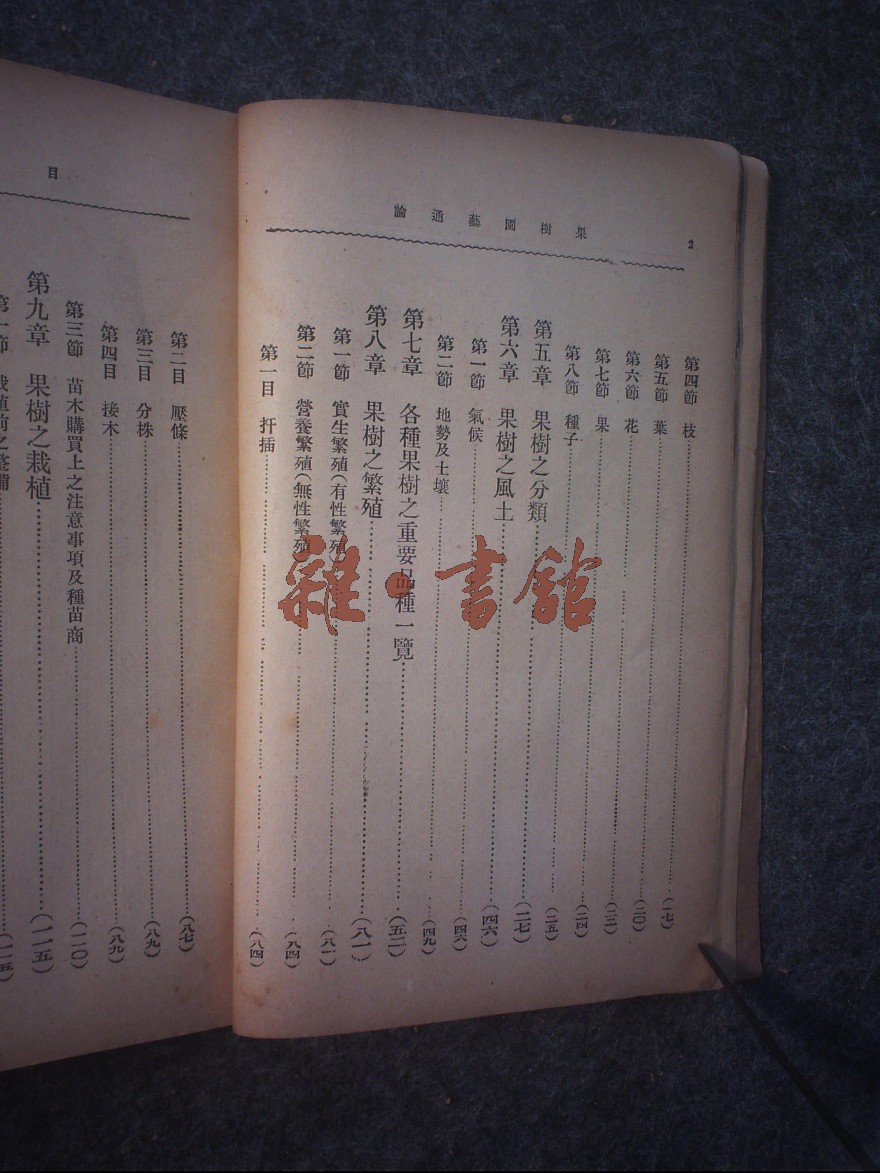 果樹園藝通論
2
第四節 枝……(一七)
第五節 葉……(二〇)
第六節 花……(二二)
第七節 果……(二四)
第八節 種子……(二五)
第五章 果樹之分類……(二七)
第六章 果樹之風土……(四六)
第一節 氣候……(四六)
第二節 地勢及土壤……(四九)
第七章 各種果樹之重要品種一覽……(五二)
第八章 果樹之繁殖……(八一)
第一節 實生繁殖(有性繁殖)……(八一)
第二節 營養繁殖(無性繁殖)……(八四)
第一目 扦插……(八四)
目
第二目 壓條……(八七)
第三目 分株……(八九)
第四目 接木……(八九)
第三節 苗木購買上之注意事項及種苗商……(一一〇)
第九章 果樹之栽植……(一一五)
第一節 栽植前之整備……(一一五)
雜·書館